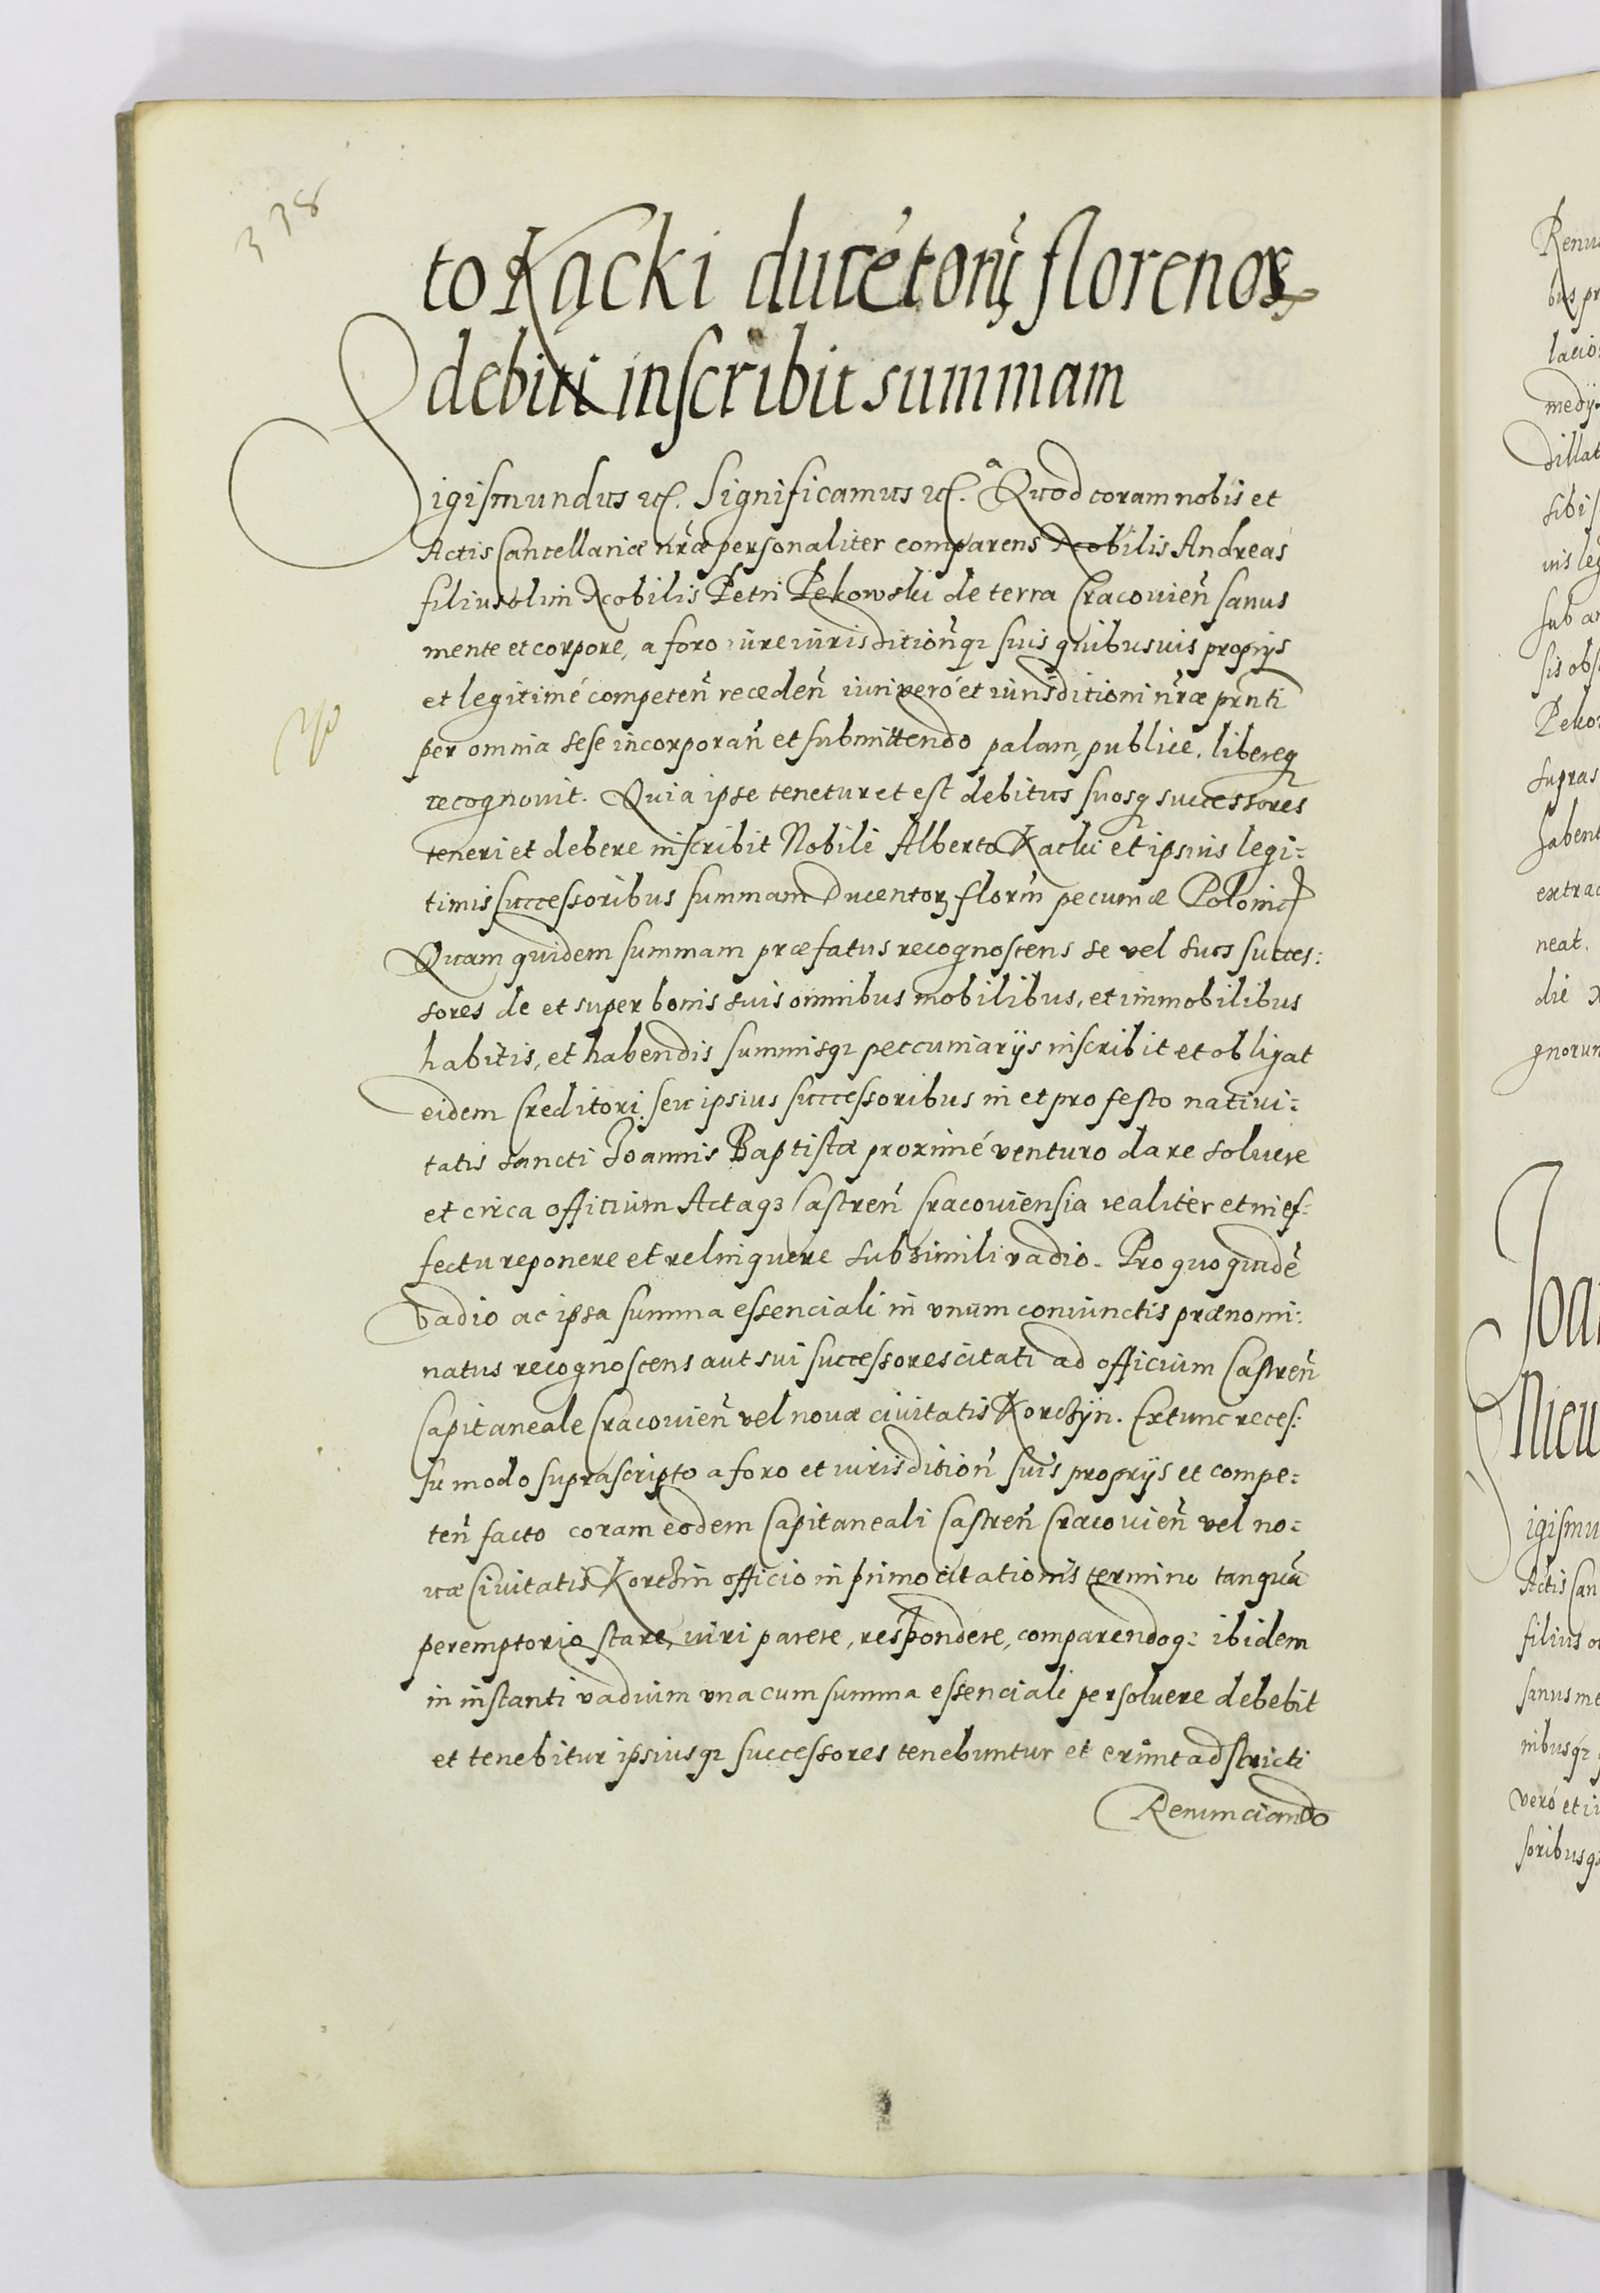 338
to Kącki ducẽtorų florenor
debiti inscribit summam
Sigismundus etc. Significamus etc. Quod coram nobis et
Actis Cancellariæ nr̃æ personaliter comparens Nobilis Andreas
filius olim Nobilis Petri Pekowski de terra Cracouien̄ sanus
mente et corpore, a foro iure iurisdition̄q₃ suis quibusuis proprijs
et legitimé competen̄ receden̄ iuri veró et iurisditioni nr̃æ prñti
per omnia sese incorporan̄ et submittendo palam, publice, libereq₃
recognouit. Quia ipse tenetur et est debitus suosq₃ successores
teneri et debere inscribit Nobili Alberto Kacki et ipsius legi=
timis successoribus summam Ducentor florin̄ pecuniæ Polonic
Quam quidem summam præfatus recognoscens se vel suos succes:
sores de et super bonis suis omnibus mobilibus, et immobilibus
habitis, et habendis summisq₃ peccuniarijs inscribit et obligat
eidem Creditori seu ipsius successoribus in et pro festo natiui=
tatis sancti Joannis Baptistæ proximé venturo dare soluere
et circa officium Actaq₃ Castren̄ Cracouiensia realiter et in ef=
fectu reponere et relinquere sub simili vadio. Pro quo quidē
vadio ac ipsa summa essenciali in vnum coniunctis prænomi:
natus recognoscens aut sui successores citati ad officium Castren̄
Capitaneale Cracouien̄ vel nouæ ciuitatis Korczyn. Extunc reces:
su modo suprascripto a foro et iurisdition̄ suis proprijs et compe=
ten̄ facto coram eodem Capitaneali Castren̄ Cracouien̄ vel no=
uæ Ciuitatis Korczin officio in primo citationis termino tanquā
peremptorio stare, iuri parere, respondere, comparendoq₃ ibidem
in instanti vadium vna cum summa essenciali persoluere debebit
et tenebitur ipsiusq₃ successores tenebuntur et erunt adstricti
Renunciando